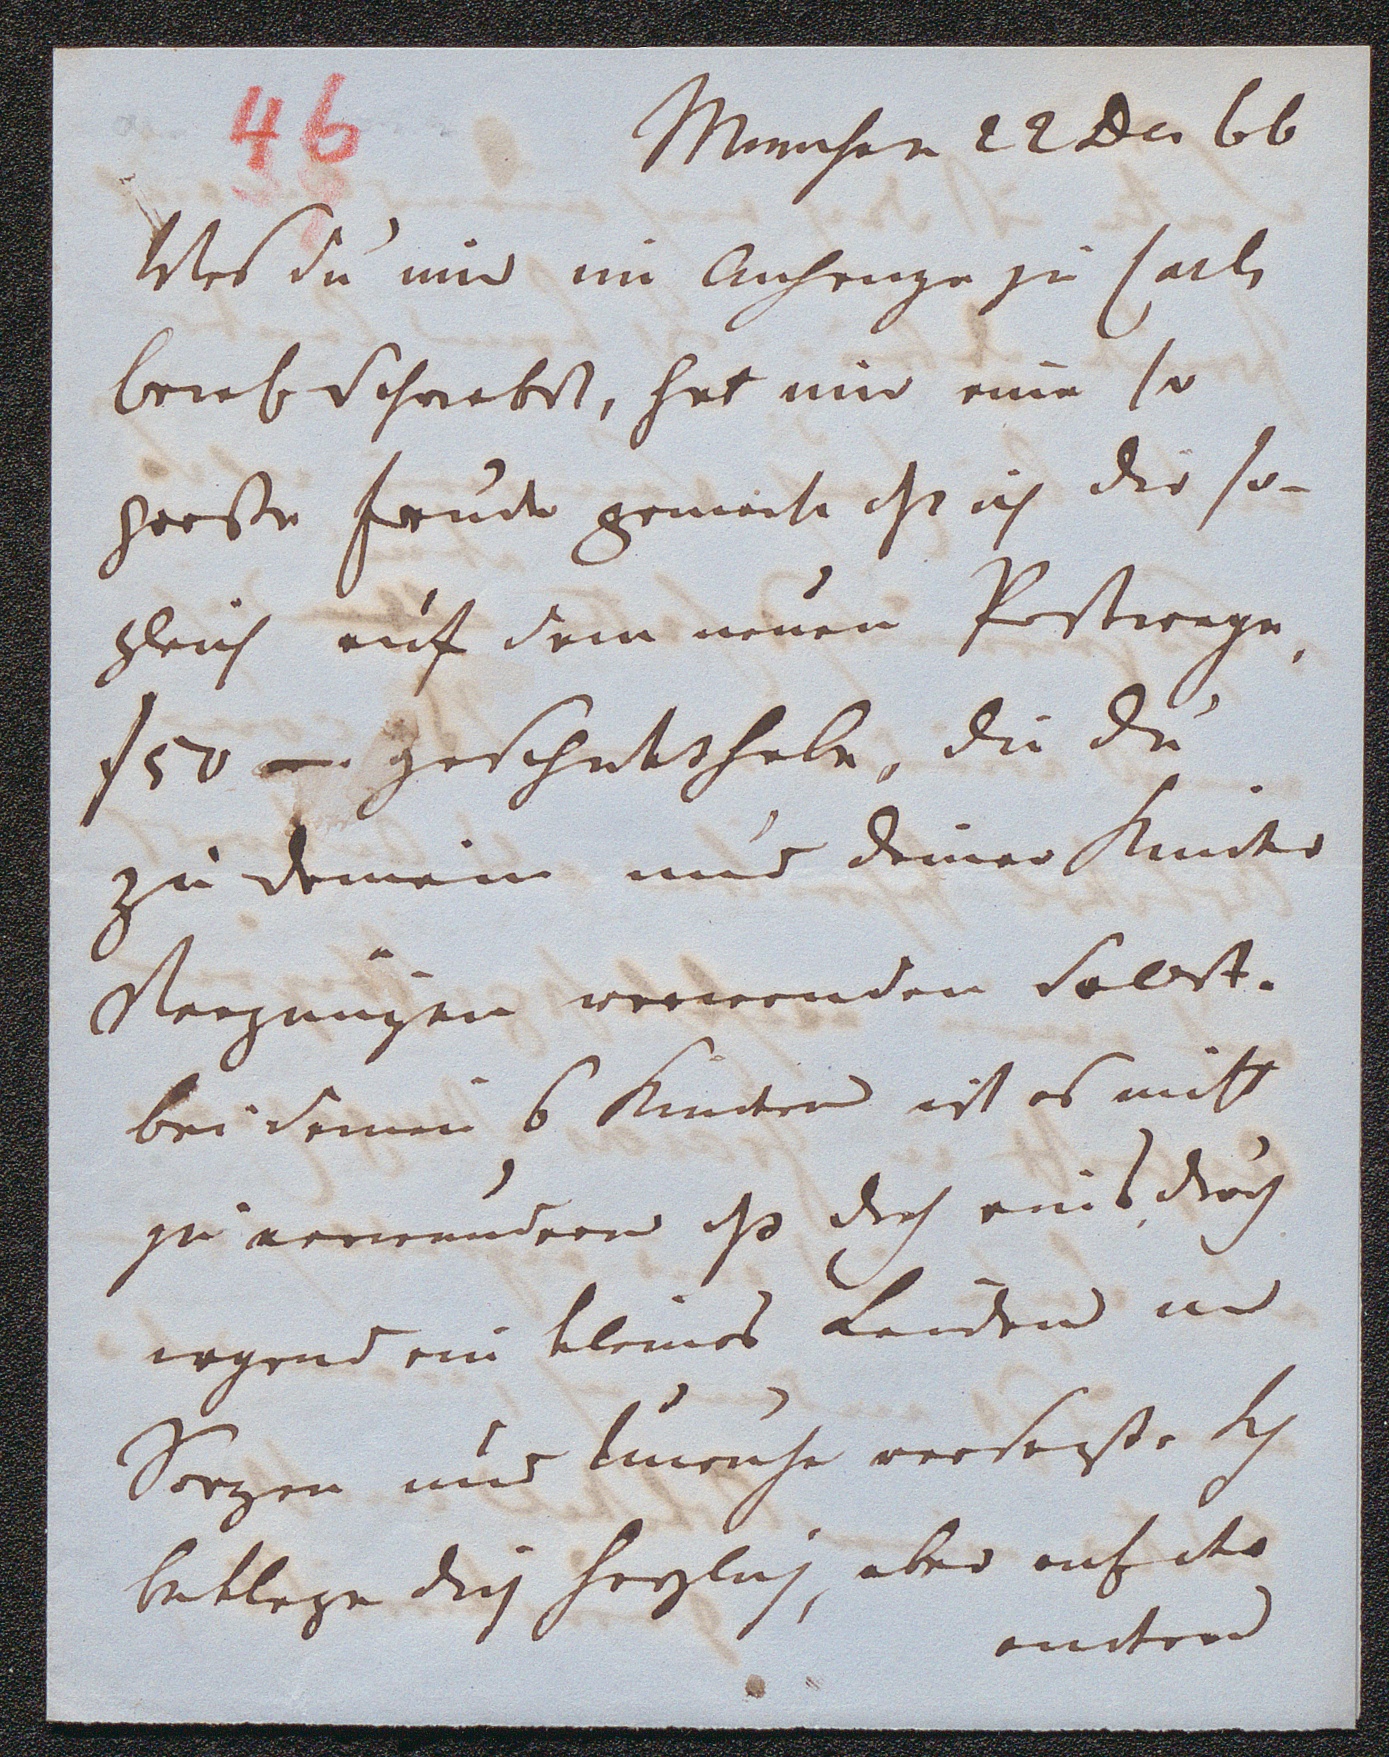 46
München 22 Dec 66
Was du mir im Anhange zu Carls
brief schreibst, hat mir eine so
große Freude gemacht daß ich dir so-
gleich auf dem neuen Postwege,
f 50 — geschickt habe, die du
zu deinem und deiner Kinder
Vergnügen verwenden sollst.
bei deinen 6 Kindern ist es nicht
zu verwundern daß doch eins dich
irgend ein kleines Leiden in
Sorgen und Unruhe versetzt. Ich
beklage dich herzlich, aber auf der
andern